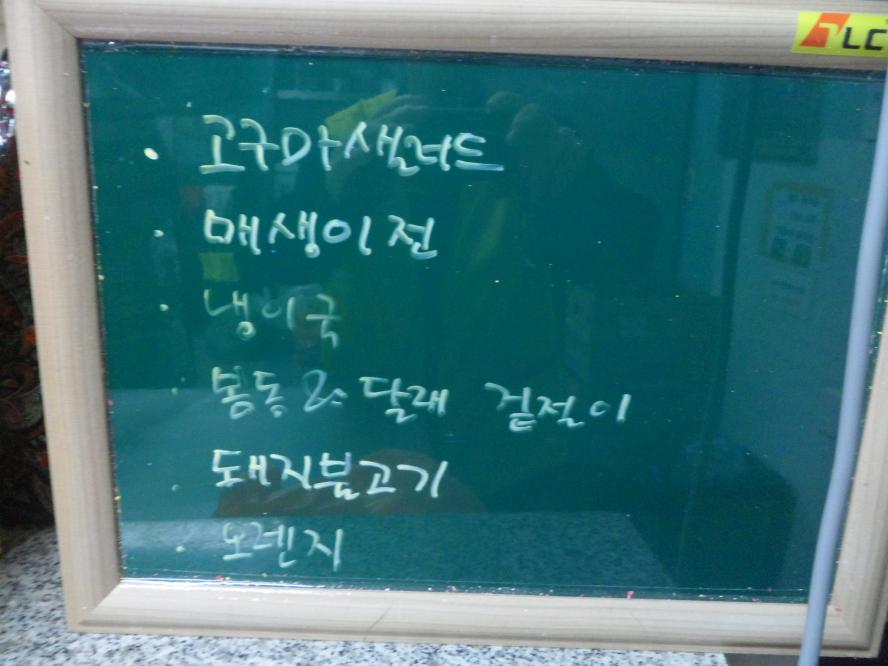 LC
· 고구마샐러드
· 매생이전
· 냉이국
· 봄동&달래 겉절이
· 돼지불고기
· 오렌지